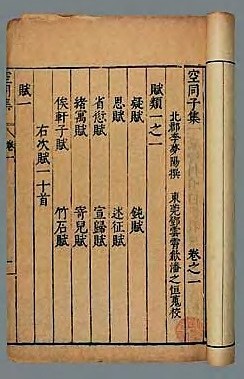 空同子集 卷之一
北郡李夢陽撰 東莞鄧雲霄歙潘之恒蒐校
賦類一之一
疑賦 鈍賦
思賦 述征賦
省愆賦 宣歸賦
緒寓賦 寄兒賦
俟軒子賦 竹石賦
右次賦一十首
賦一
空同集 卷一